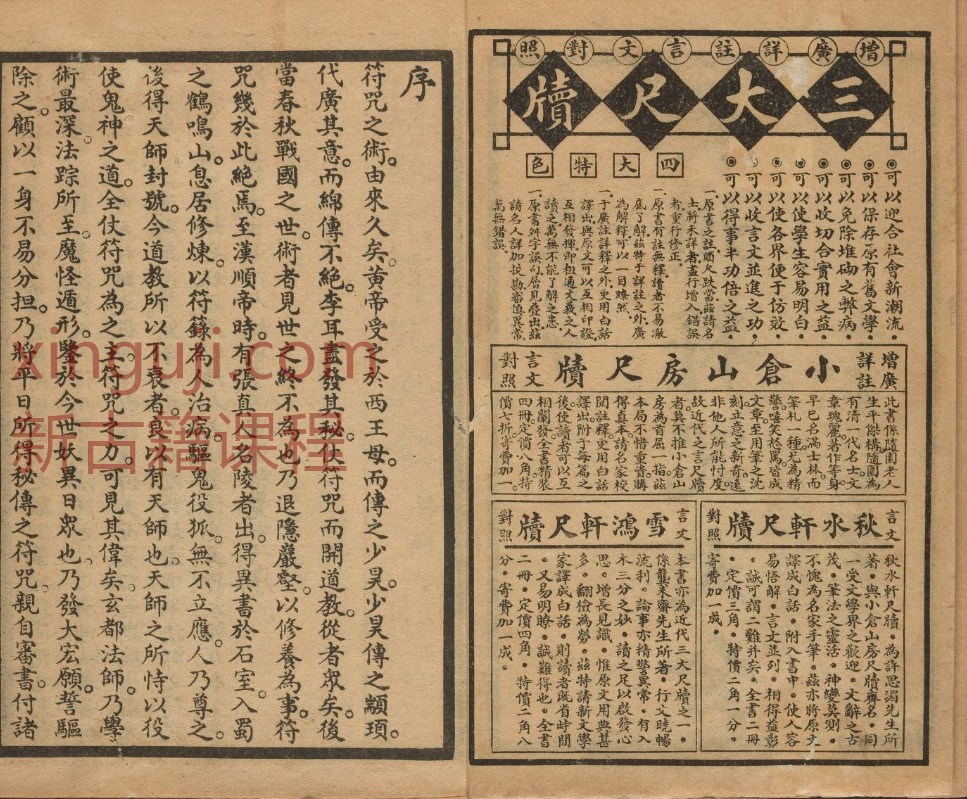 增廣詳註言文對照
三大尺牘
四大特色
◉可以迎合社會新潮流・
◉可以保存原有舊文學・
◉可以免除堆砌之弊病・
◉可以收切合實用之益・
◉可以使學生容易明白・
◉可以使各界便于仿效・
◉可以收言文並進之功・
◉可以得事半功倍之益・
一原書之註頗欠跌當茲請名
士將未詳者盡行增入錯誤
者重行修正。
一原書有註無釋讀者不易澈
底了解茲特于詳註之外廣
為解釋可以一目瞭然。
一于廣註詳釋之外更用白話
譯出與原文可以互相印證
互相發揮即粗通文義之人
讀之萬無不能了解之患
一原書舛字誤句層見疊出茲
請名人詳加校勘審慎異常
萬無錯誤
增廣詳註
小倉山房尺牘
言文對照
此書係隨園老人
生平傑構隨園為
有清一代名士文
章瑰麗著作等身
早已名滿士林而
箋札一種尤為精
警嘻笑怒罵皆成
文章至用筆之沈
刻立意之新奇遠
非他人所能忖度
故近代之言尺牘
者莫不推小倉山
房為首屈一指茲
本局不惜重資購
得真本請名家校
閱註釋更用白話
譯出附于每篇之
後使讀者可以互
相闡發全書精裝
四冊定價八角特
價七折寄費加一
言文對照
秋水軒尺牘
秋水軒尺牘・為許思湄先生所
著・與小倉山房尺牘齊名・同
一受文學界之歡迎・文辭之古
茂・筆法之靈活・神變莫測・
不愧為名家手筆・茲亦將原文
譯成白話・附入書中・使人容
易悟解・言文並列・相得益彰
・誠可謂二難并矣・全書二冊
・定價三角・特價二角一分・
寄費加一成・
言文對照
雪鴻軒尺牘
本書亦為近代三大尺牘之一・
係龔未齋先生所著・行文曉暢
流利・論事亦精警異常・有入
木三分之妙・讀之足以啟發心
思・增長見識・惟原文用典甚
多・翻檢為勞・茲特請新文學
家譯成白話・則讀者既省時間
・又易明瞭・誠難得也・全書
二冊・定價四角・特價二角八
分・寄費加一成・
序
符咒之術。由來久矣。黃帝受之於西王母。而傳之少昊。少昊傳之顓頊。
代廣其意。而綿傳不絕。李耳盡發其秘。仗符咒而開道教。從者眾矣。後
當春秋戰國之世。術者見世之終不為也。乃退隱巖壑。以修養為事。符
咒幾於此絕焉。至漢順帝時。有張真人名陵者出。得異書於石室。入蜀
之鶴鳴山。息居修煉。以符籙為人治病。驅鬼役狐。無不立應。人乃尊之。
後得天師封號。今道教所以不衰者。良以有天師也。天師之所恃以役
使鬼神之道。全仗符咒為之主。符咒之力。可見其偉矣。玄都法師。乃學
術最深。法踪所至。魔怪遁形。鑒於今世妖異日眾也。乃發大宏願。誓驅
除之。顧以一身不易分担。乃將平日所得秘傳之符咒。親自審書。付諸
xinguji.com
新古籍课程